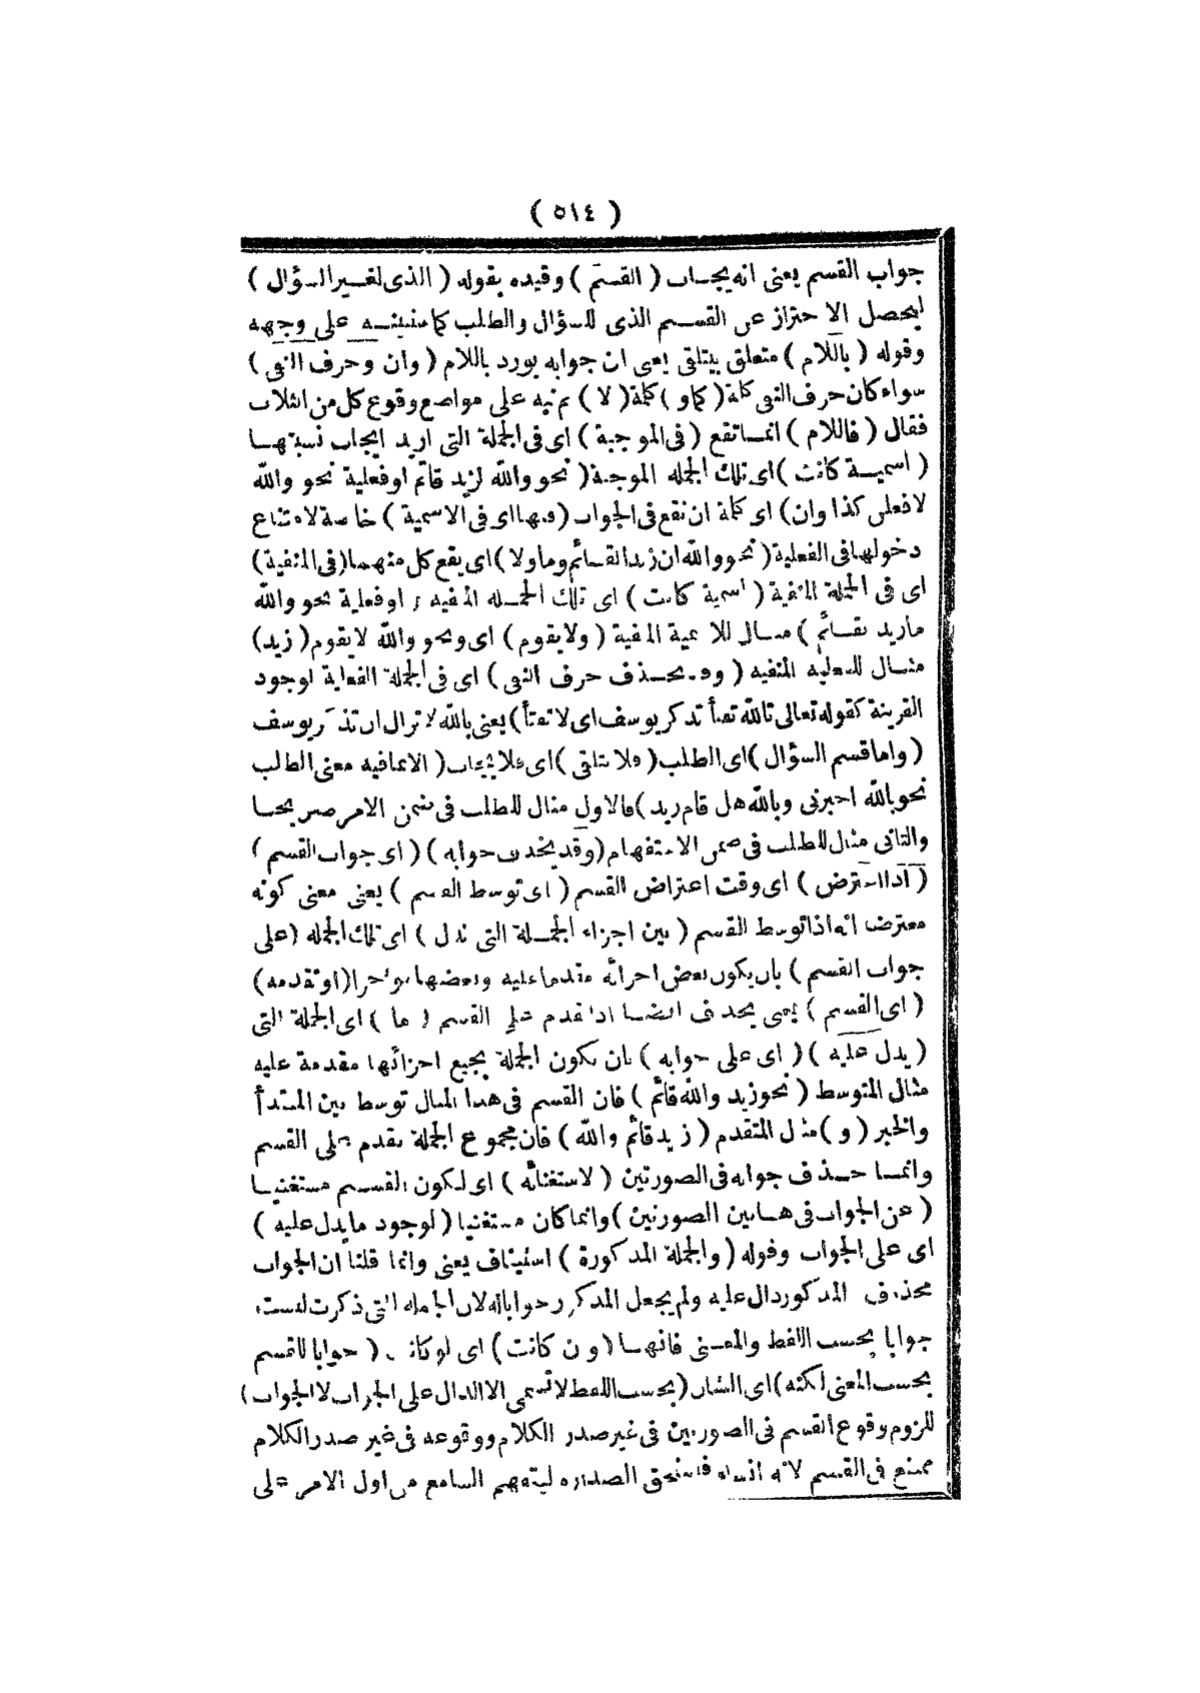 ( ٥١٤ )
جواب القسم يعنى انه يجـاب ( القسم ) وقيده بقوله ( الذى لغـير السؤال )
ليحصل الاحتراز عن القسـم الذى للسؤال والطلب كما سنبينـه على وجهه
وقوله ( باللام ) متعلق بيتلقى يعنى ان جوابه يورد باللام ( وان وحرف النفى )
سواء كان حرف النفى كلة ( كما و ) كلمة ( لا ) ثم نبه على مواضع وقوع كل من الثلاث
فقال ( فاللام ) انمـا تقع ( فى الموجبة ) اى فى الجملة التى اريد ايجاب نسبتهـا
( اسميـة كانت ) اى تلك الجمله الموجبة ( نحو والله لزيد قائم او فعلية نحو والله
لافعلن كذا وان ) اى كلمة ان تقع فى الجواب ( فيها اى فى الاسمية ) خاصة لامتناع
دخولها فى الفعلية ( نحو والله ان زيدا لقـائم وما ولا ) اى يقع كل منهما ( فى المنفية )
اى فى الجملة المنفية ( اسمية كانت ) اى تلك الجمـله المنفيه ( او فعلية نحو والله
مازيد بقـائم ) مثـال للاسمية المنفية ( ولا يقوم ) اى ونحو والله لا يقوم ( زيد )
مثـال للفعليه المنفيه ( وقد يحـذف حرف النفى ) اى فى الجملة الفعلية لوجود
القرينة كقوله تعالى تالله تفتأ تذكر يوسف اى لا تفتأ ) يعنى بالله لا تزال ان تذكر يوسف
( واما قسم السؤال ) اى الطلب ( فلا يتلقى ) اى فلا يجاب ( الا بما فيه معنى الطلب
نحو بالله اخبرنى وبالله هل قام زيد ) فالاول مثال للطلب فى ضمن الامر صريحـا
والثانى مثـال للطلب فى ضمن الاستفهام ( وقد يحذف جوابه ) ( اى جواب القسم )
( اذا اعترض ) اى وقت اعتراض القسم ( اى توسط القسم ) يعنى معنى كونه
معترضا انه اذا توسط القسم ( بين اجزاء الجمـلة التى تدل ) اى تلك الجمله ( على
جواب القسم ) بان يكون بعض اجزائه متقدما عليه وبعضها مؤخرا ( او تقدمه )
( اى القسم ) يعنى يحذف ايضـا اذا تقدم على القسم ( ما ) اى الجملة التى
( يدل عليه ) ( اى على جوابه ) بان تكون الجملة بجميع اجزائها مقدمة عليه
مثال المتوسط ( نحو زيد والله قائم ) فان القسم فى هذا المثال توسط بين المبتدأ
والخبر ( و ) مثـل المتقدم ( زيد قائم والله ) فان مجموع الجملة تقدم على القسم
وانمـا حـذف جوابه فى الصورتين ( لاستغنائه ) اى لـكون القسـم مستغنيـا
( عن الجواب فى هـاتين الصورتين ) وانما كان مستغنيا ( لوجود ما يدل عليه )
اى على الجواب وقوله ( والجملة المذكورة ) استيناف يعنى وانما قلنا ان الجواب
محذوف المذكور دال عليه ولم يجعل المذكور جوابا له لان الجمله التى ذكرت ليست
جوابا بحسب اللفظ والمعـنى فانهـا ( وان كانت ) اى لو كانت ( جوابا للقسم
بحسب المعنى لكنه ) اى الشان ( بحسب اللفظ لا تسمى الا الدال على الجواب لا الجواب )
للزوم وقوع القسم فى الصورتين فى غير صدر الكلام ووقوعه فى غير صدر الكلام
ممتنع فى القسم لانه انشاء فاستحق الصداره ليتفهم السامع من اول الامر على